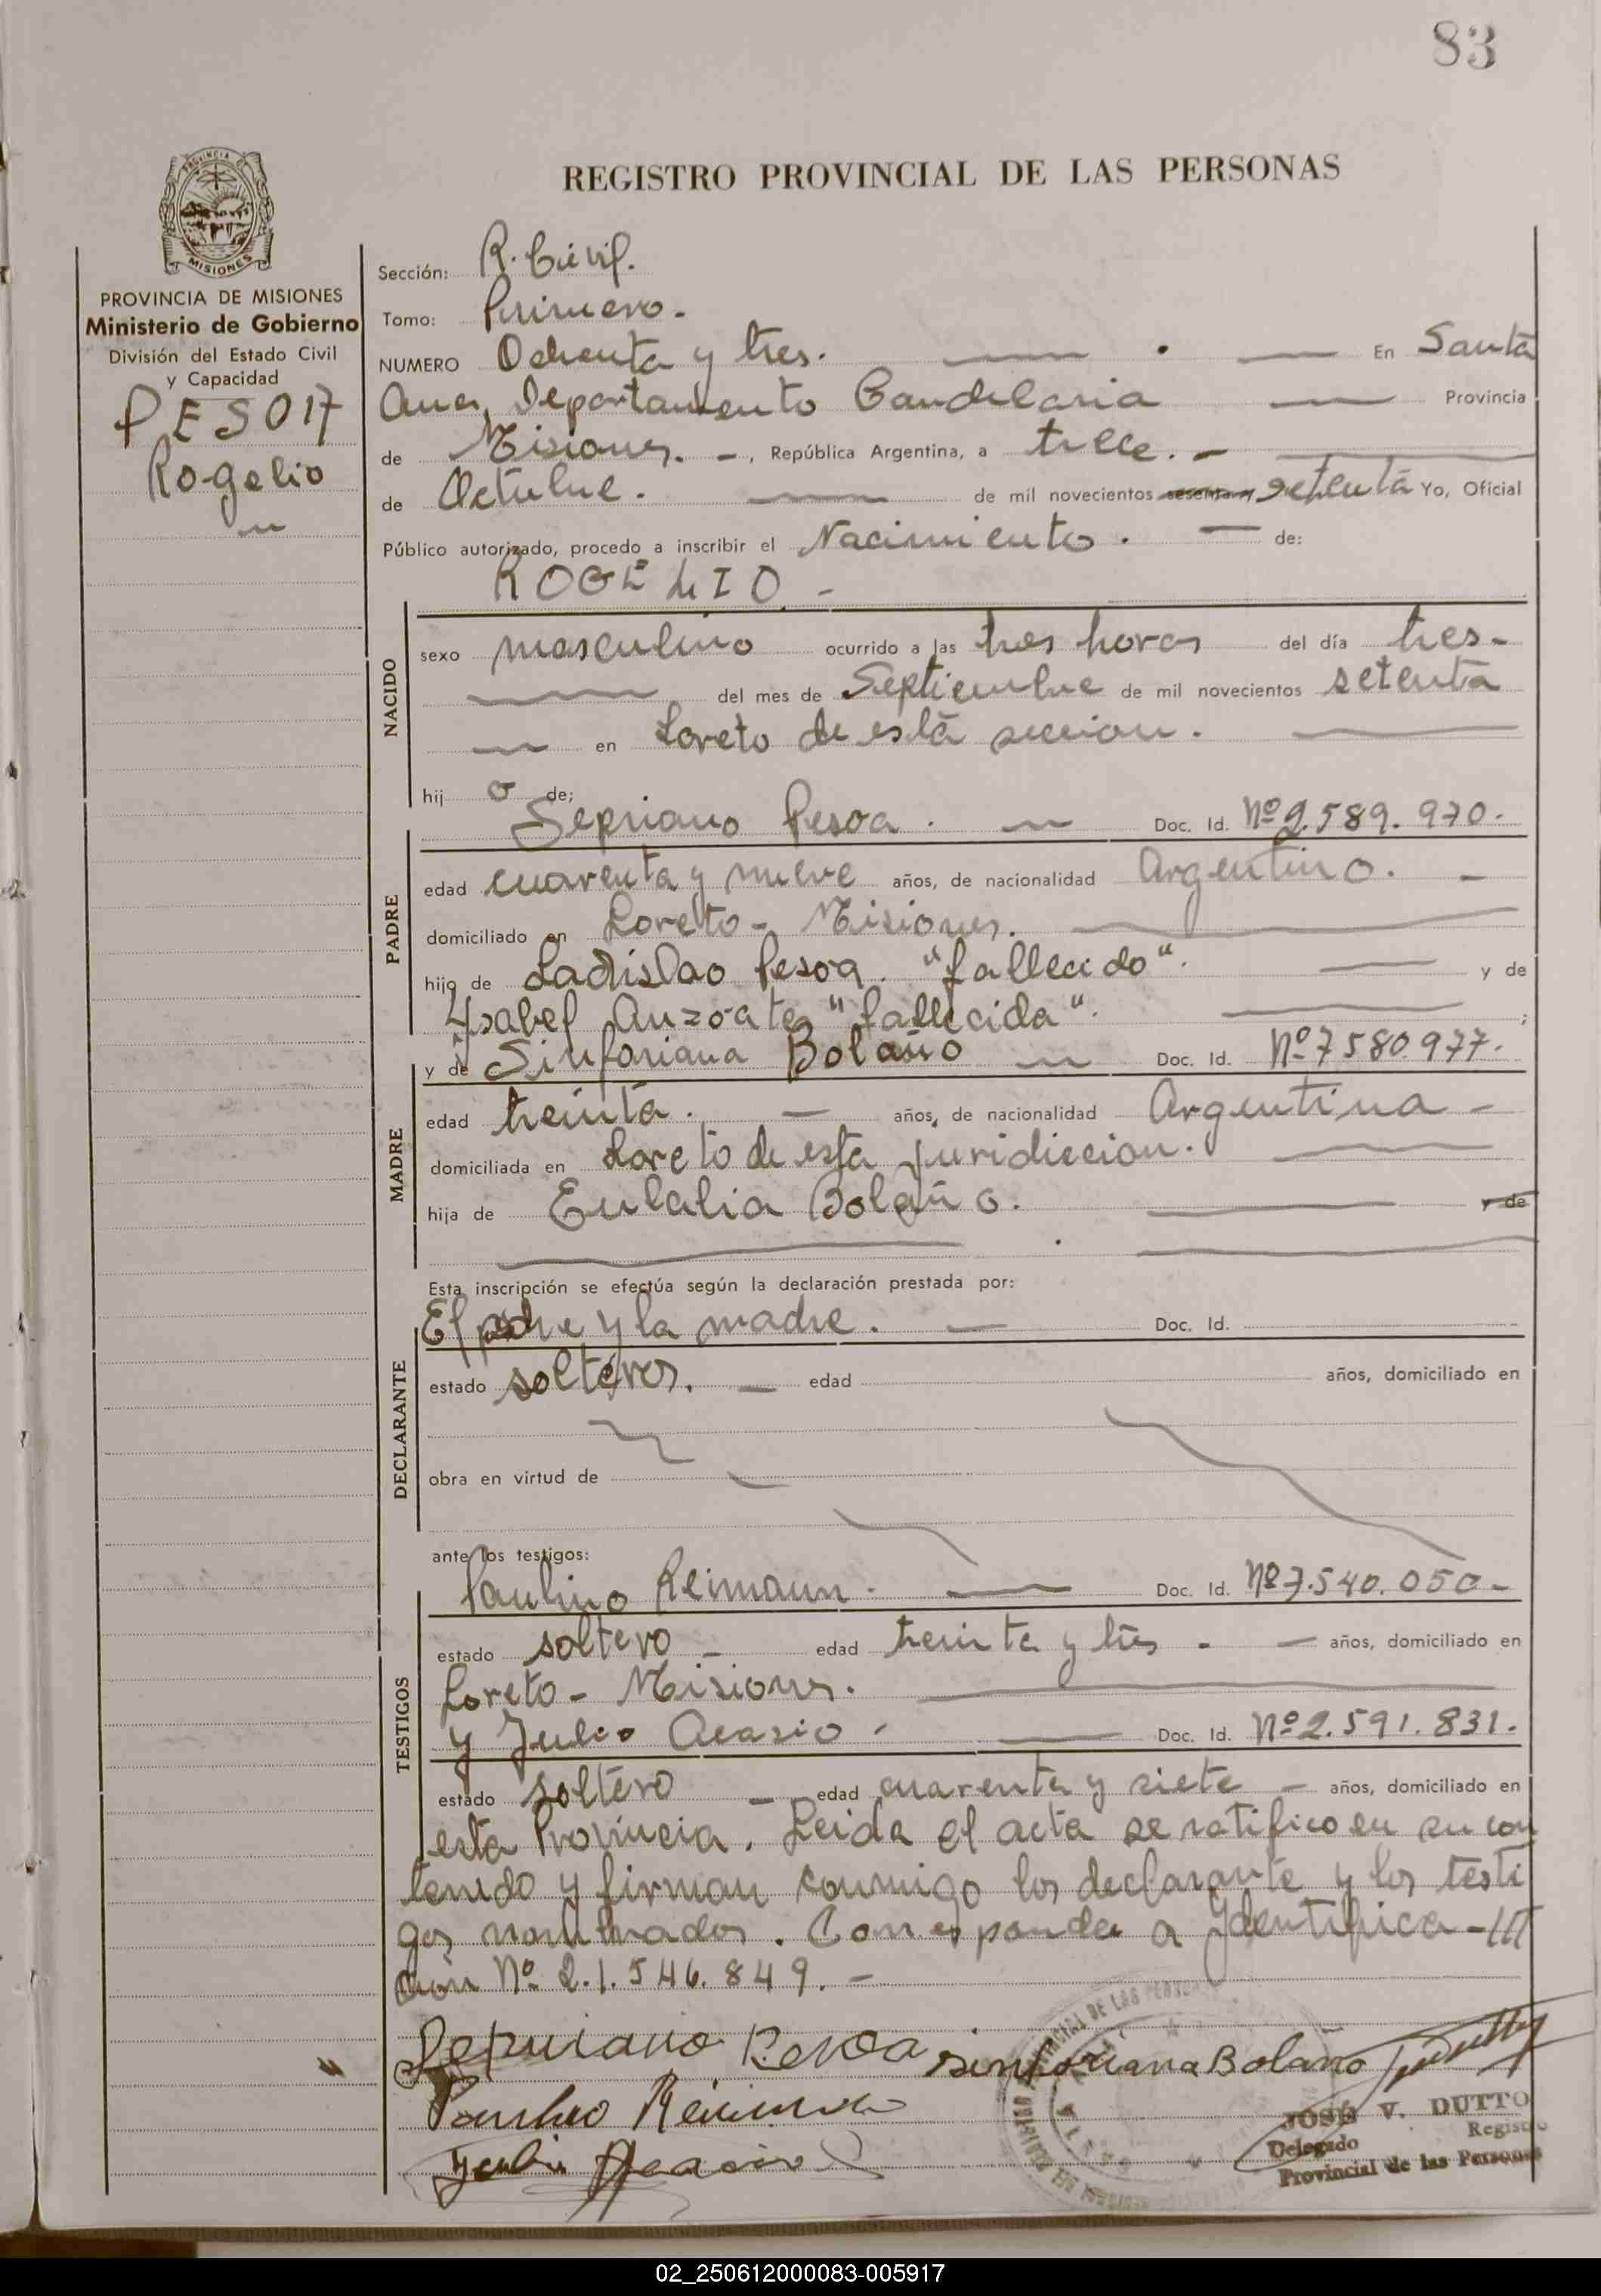 83
REGISTRO PROVINCIAL DE LAS PERSONAS
PROVINCIA DE MISIONES
Ministerio de Gobierno
División del Estado Civil
y Capacidad
PESOA
Rogelio
Sección: R. Civil.
Tomo: Primero.-
NUMERO Ochenta y tres. En Santa
Ana, Departamento Candelaria Provincia
de Misiones. -, República Argentina, a trece. -
de Octubre. de mil novecientos sesenta y setenta Yo, Oficial
Público autorizado, procedo a inscribir el Nacimiento. - de:
ROGELIO. -
NACIDO
sexo masculino ocurrido a las tres horas del día tres-
del mes de Septiembre de mil novecientos setenta
en Loreto de esta sección.
hij o de;
Sepriano Pesoa. Doc. Id. Nº 2.589.970.
PADRE
edad cuarenta y nueve años, de nacionalidad Argentino. -
domiciliado en Loreto- Misiones.
hijo de Ladislao Pesoa. "fallecido". y de
Ysabel Anzoate "fallecida". ;
y de Sinforiana Bolaño Doc. Id. Nº 7580.977.
MADRE
edad treinta. - años, de nacionalidad Argentina -
domiciliada en Loreto de esta juridiccion.
hija de Eulalia Bolaño. y de
Esta inscripción se efectúa según la declaración prestada por:
El padre y la madre. Doc. Id.
DECLARANTE
estado solteros. - edad años, domiciliado en
obra en virtud de
ante los testigos:
Paulino Reimann. Doc. Id. Nº 7.540.050-
TESTIGOS
estado soltero - edad treinta y tres - años, domiciliado en
Loreto- Misiones.
y Julio Acasio. Doc. Id. Nº 2.591.831.
estado soltero - edad cuarenta y siete - años, domiciliado en
esta Provincia. Leida el acta se ratifico en su con
tenido y firman conmigo los declarante y los testi
gos nombrados. Corresponde a Ydentifica-///
ción Nº 21.546.849. -
Sepriano Pesoa sinforiana Bolaño
Paulino Reimann
Julio Acasio
JOSÉ V. DUTTO
Delegado Registro
Provincial de las Personas
02_250612000083-005917